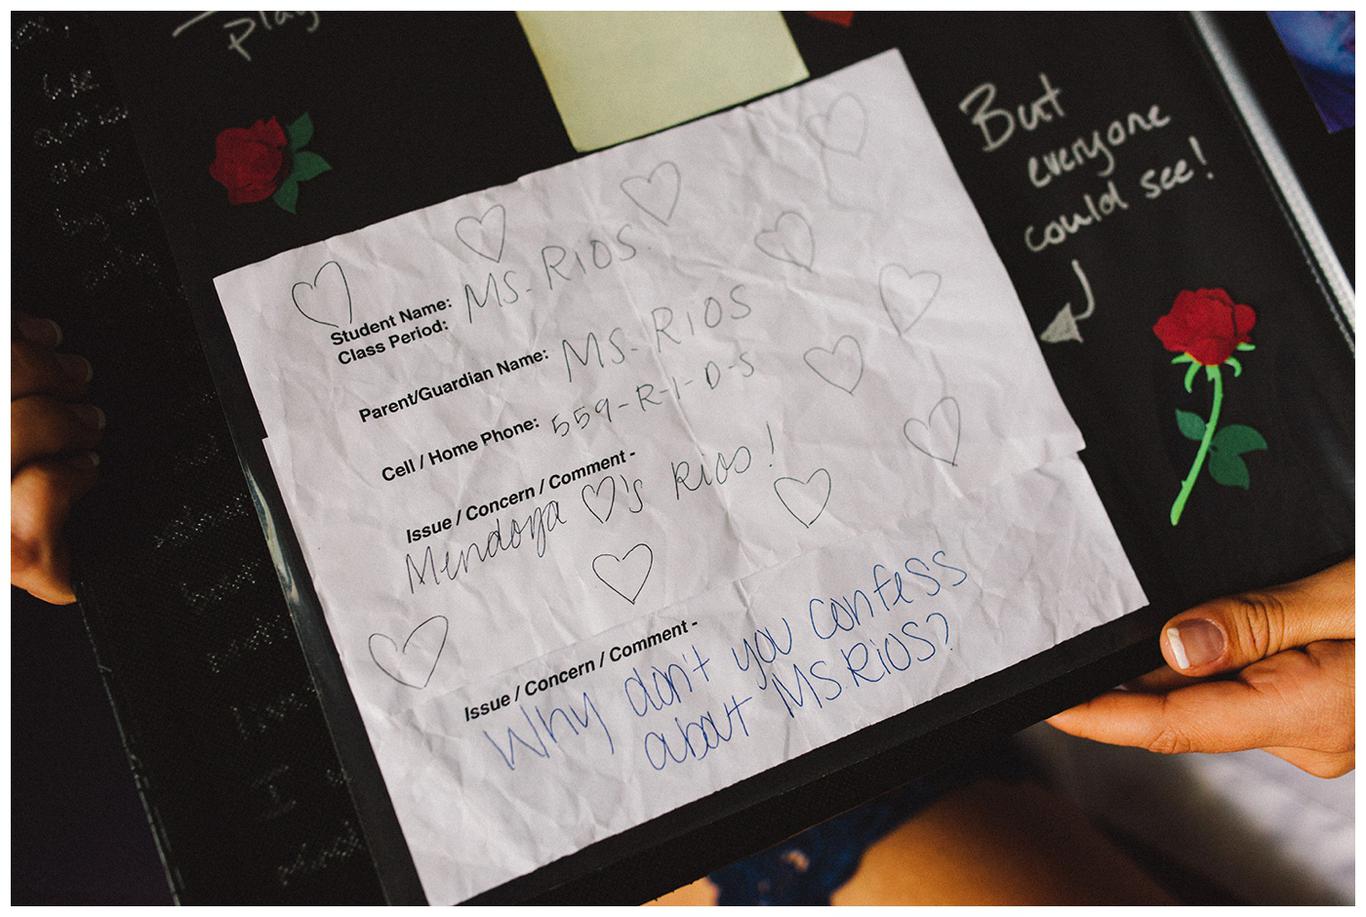 Play
But
everyone
could see!
Student Name: MS. RIOS
Class Period:
Parent/Guardian Name: MS. RIOS
Cell / Home Phone: 559-R-I-O-S
Issue / Concern / Comment -
Mendoza ♡'s Rios!
Issue / Concern / Comment -
Why don't you confess
about MS. RIOS?